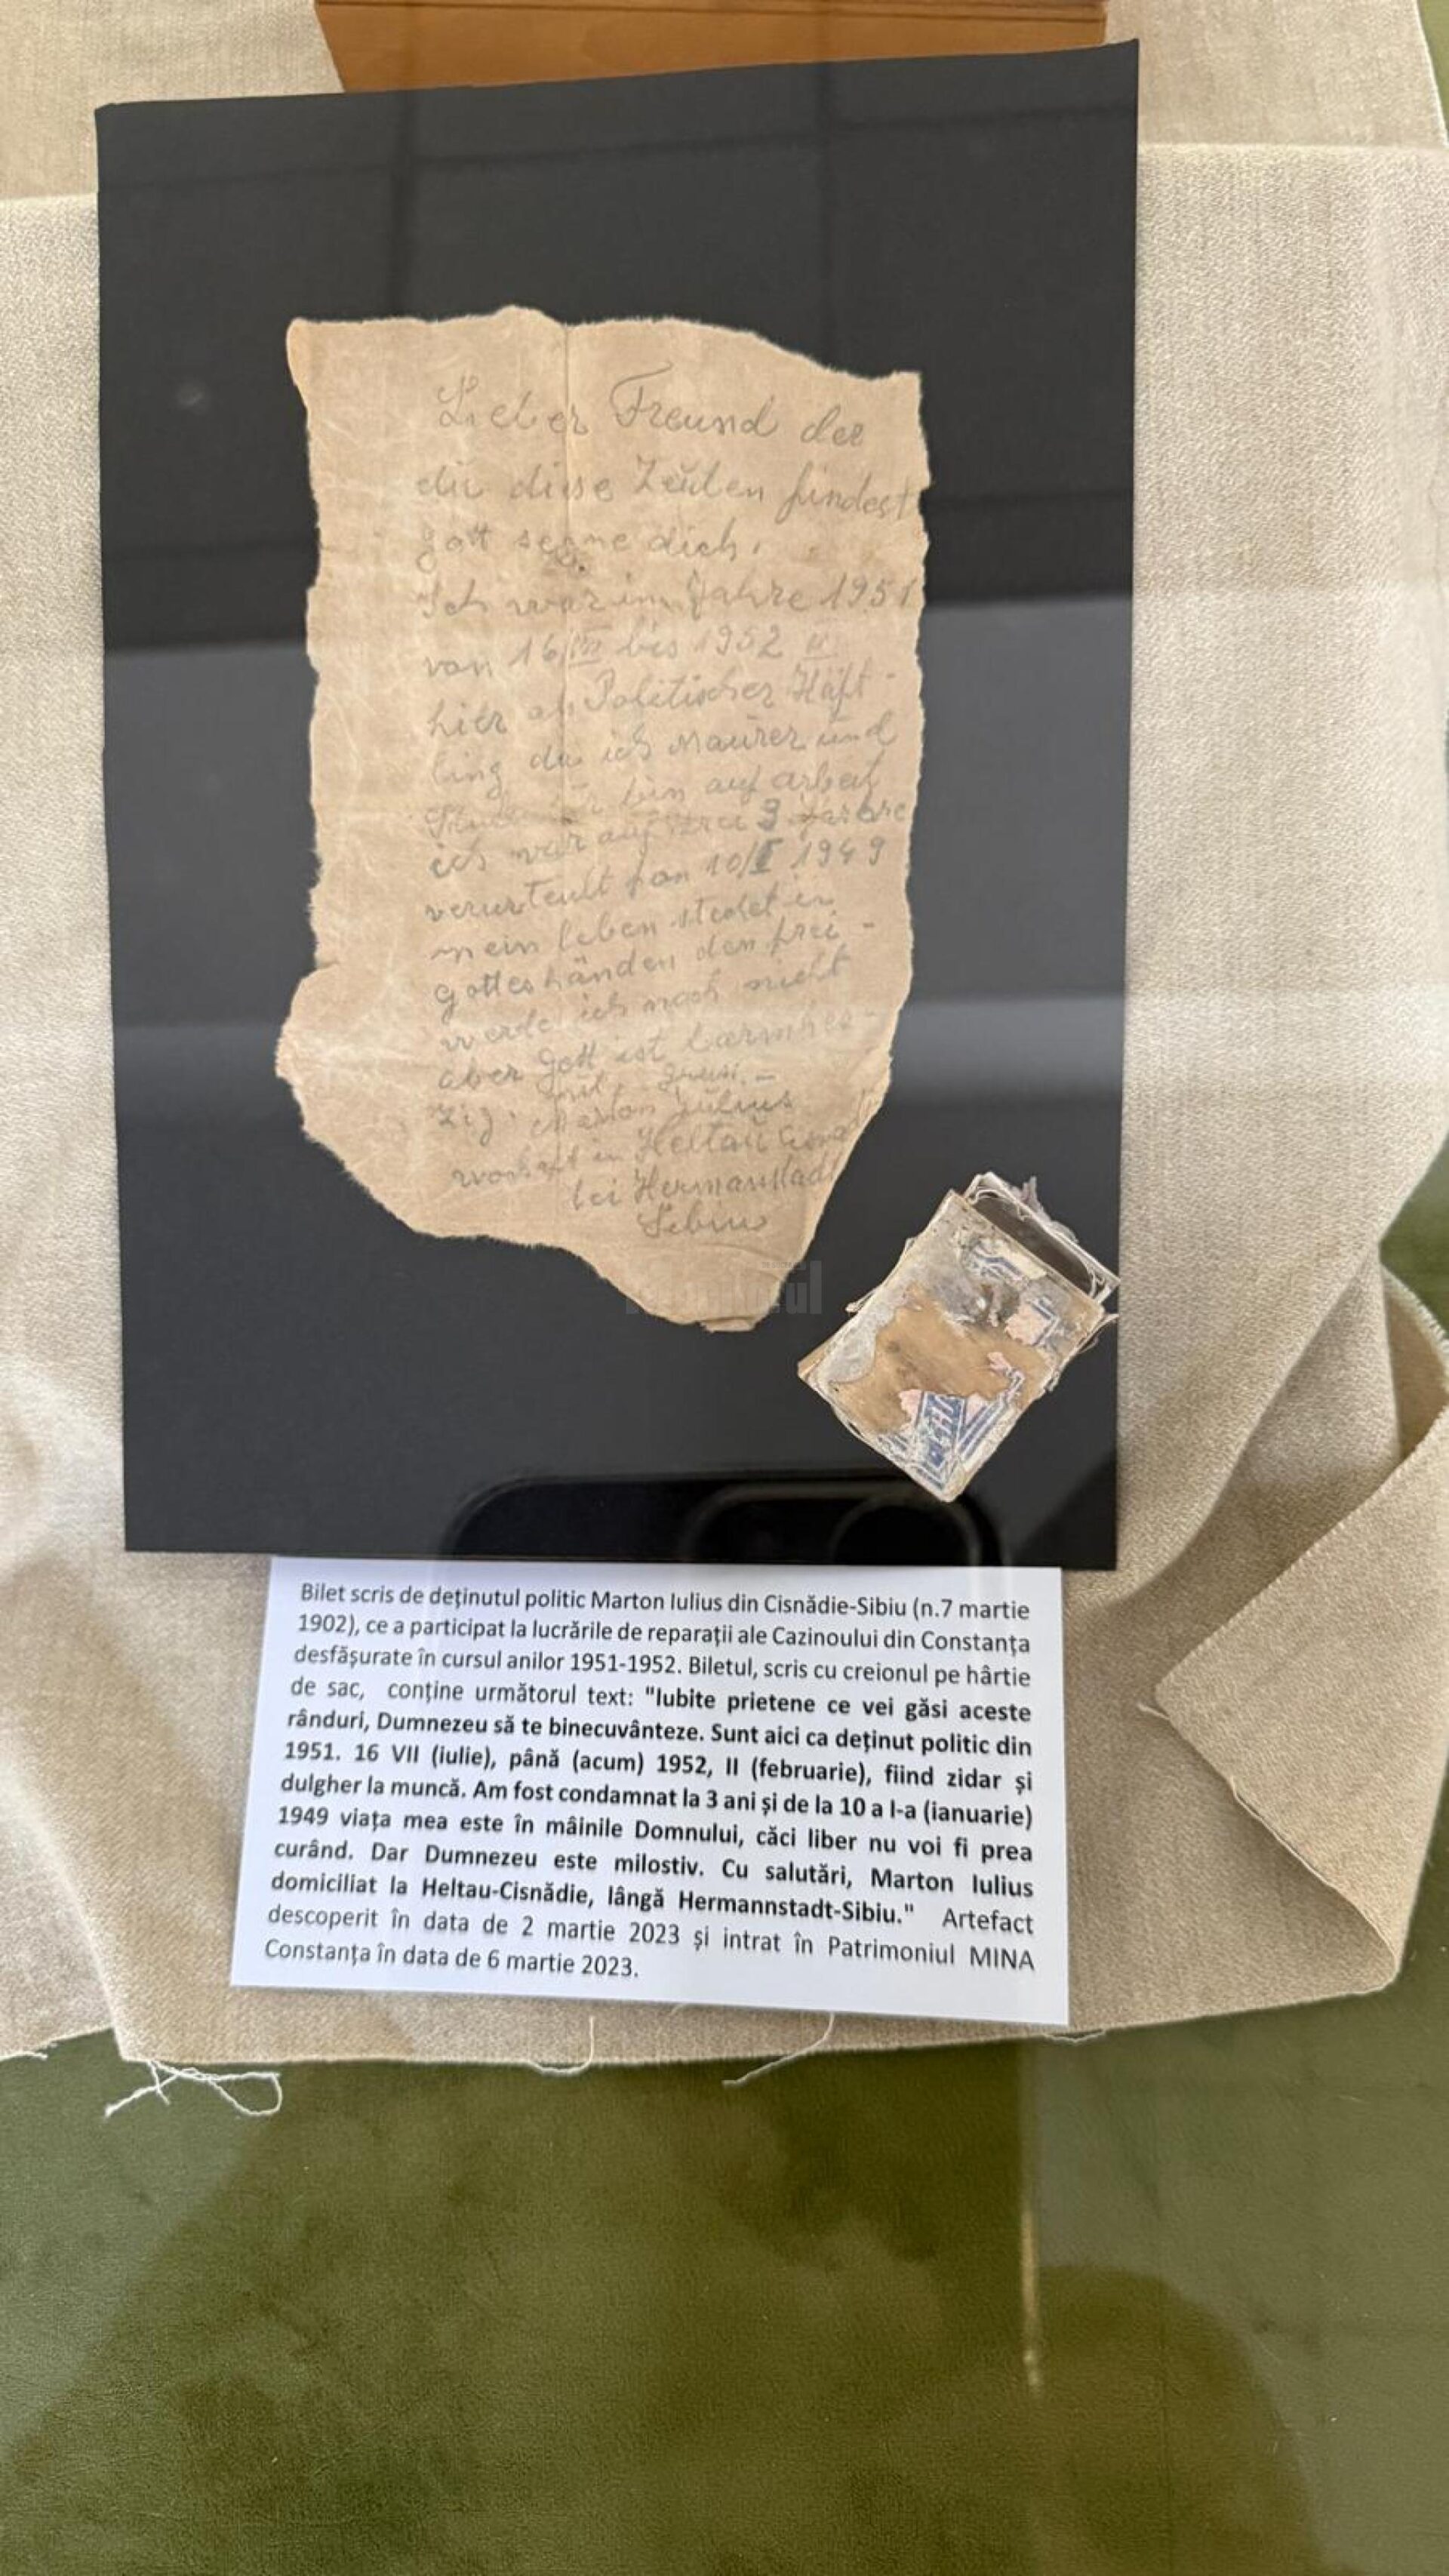 Lieber Freund der
du diese Zeulen findest
gott segne dich.
Ich war im Jahre 1951
von 16/VII bis 1952 II
hier als Politischer Häft-
ling da ich Maurer und
bin auf arbeit
ich war auf drei 3 Jahre
verurteult fon 10/I 1949
mein leben stehet in
gotteshänden den frei-
werde ich noch nicht
aber gott ist barmher-
zig. mit Gruss.-
Marton Julius
wohaft in Heltau
bei Hermanstadt
Sibiu
Bilet scris de deținutul politic Marton Iulius din Cisnădie-Sibiu (n.7 martie
1902), ce a participat la lucrările de reparații ale Cazinoului din Constanța
desfășurate în cursul anilor 1951-1952. Biletul, scris cu creionul pe hârtie
de sac, conține următorul text: "Iubite prietene ce vei găsi aceste
rânduri, Dumnezeu să te binecuvânteze. Sunt aici ca deținut politic din
1951. 16 VII (iulie), până (acum) 1952, II (februarie), fiind zidar și
dulgher la muncă. Am fost condamnat la 3 ani și de la 10 a I-a (ianuarie)
1949 viața mea este în mâinile Domnului, căci liber nu voi fi prea
curând. Dar Dumnezeu este milostiv. Cu salutări, Marton Iulius
domiciliat la Heltau-Cisnădie, lângă Hermannstadt-Sibiu." Artefact
descoperit în data de 2 martie 2023 și intrat în Patrimoniul MINA
Constanța în data de 6 martie 2023.